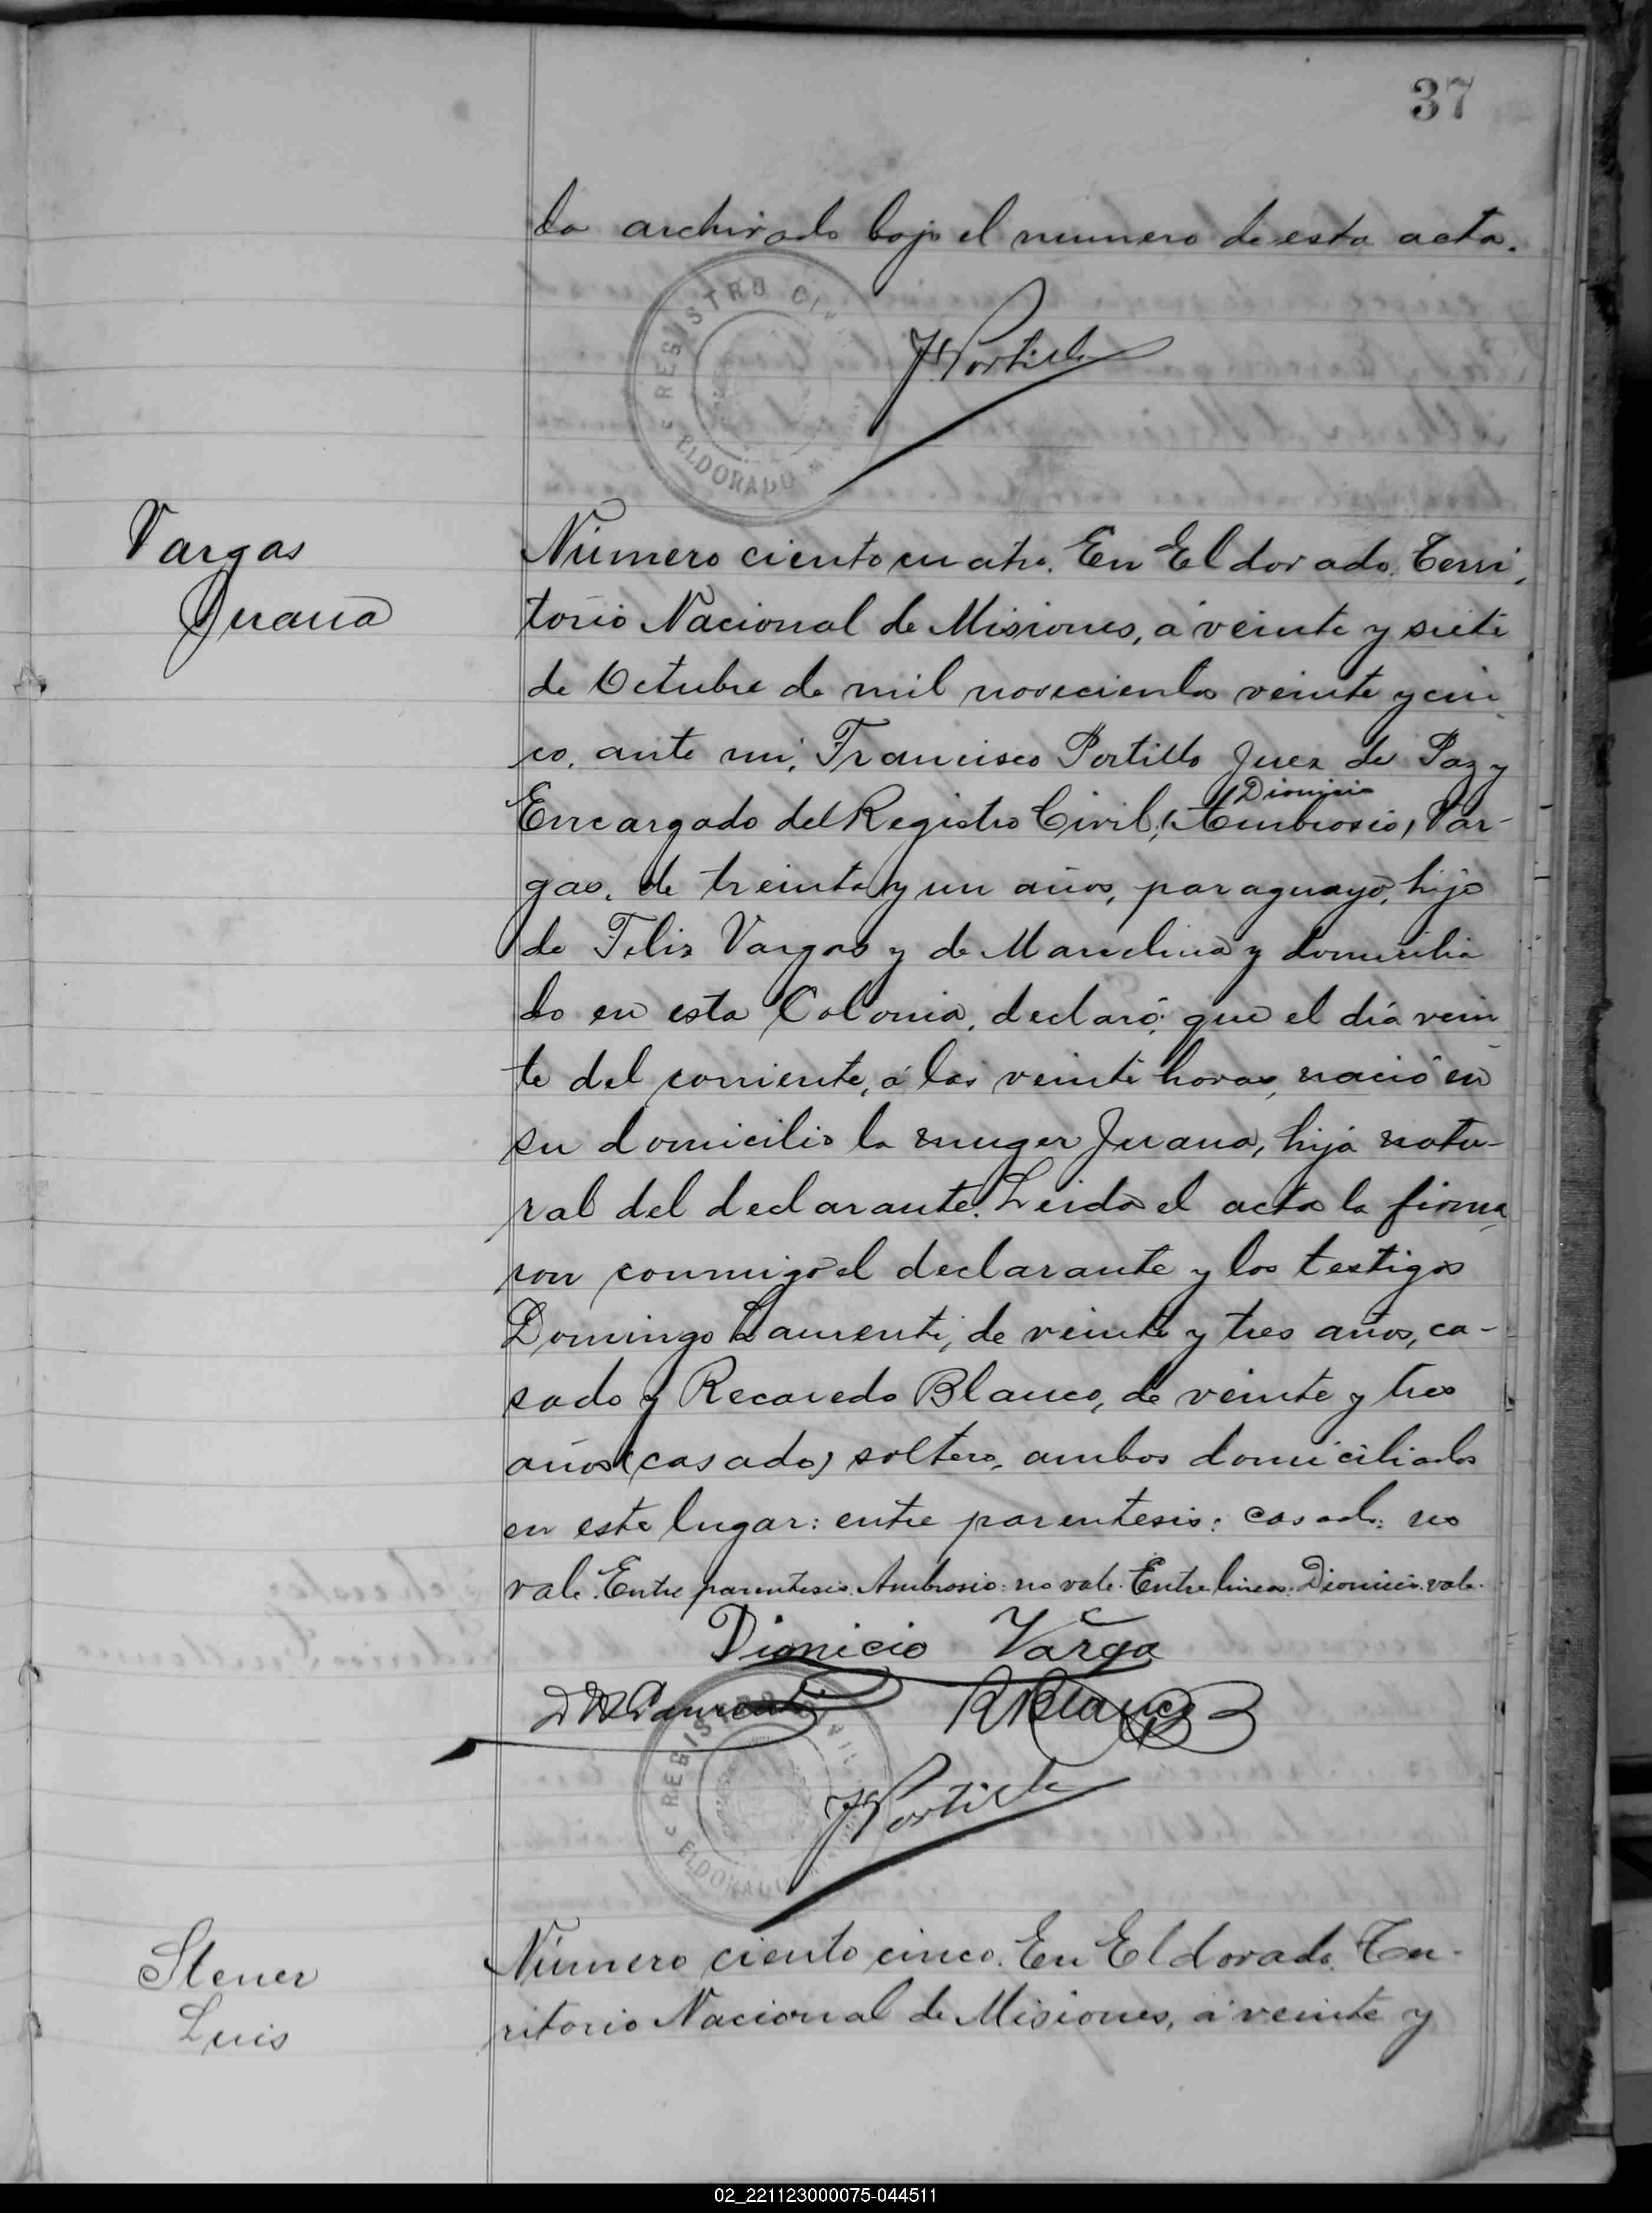 37
do archivado bajo el numero de esta acta.
REGISTRO CIVIL
ELDORADO
F. Portillo
Vargas
Juana
Número ciento cuatro. En Eldorado, Terri-
torio Nacional de Misiones, á veinte y siete
de Octubre de mil novecientos veinte y cin
co, ante mi, Francisco Portillo Juez de Paz y
Dionicio
Encargado del Registro Civil, (Ambrosio) Var-
gas, de treinta y un años, paraguayo, hijo
de Felix Vargas y de Marcelina y domicilia
do en esta Colonia, declaró: que el día vein
te del corriente, á las veinte horas, nació en
su domicilio la muger Juana, hija natu-
ral del declarante. Leida el acta la firma
ron conmigo el declarante y los testigos
Domingo Laurenti, de veinte y tres años, ca-
sado y Recaredo Blanco, de veinte y tres
años (casado) soltero, ambos domiciliados
en este lugar: entre parentesis: casado: no
vale. Entre parentesis: Ambrosio: no vale. Entre lineas: Dionicio: vale.
Dionicio Varga
D Laurenti
R Blanco
REGISTRO CIVIL
ELDORADO
F. Portillo
Stener
Luis
Número ciento cinco. En Eldorado, Ter-
ritorio Nacional de Misiones, á veinte y
02_221123000075-044511